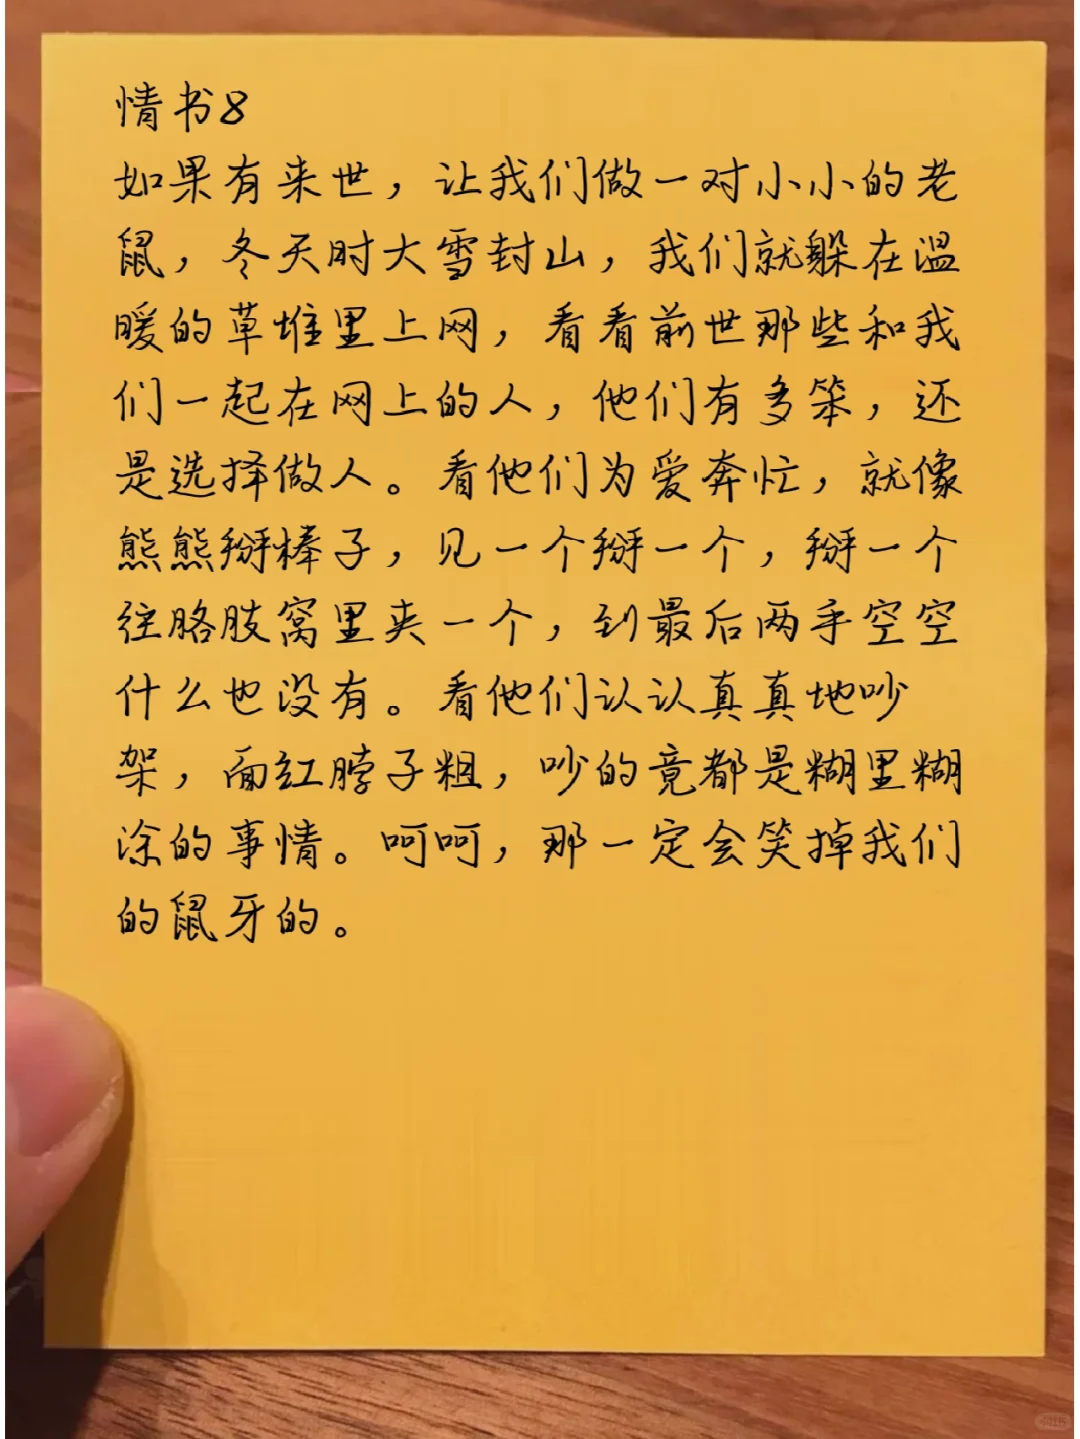 情书8
如果有来世，让我们做一对小小的老
鼠，冬天时大雪封山，我们就躲在温
暖的草堆里上网，看看前世那些和我
们一起在网上的人，他们有多笨，还
是选择做人。看他们为爱奔忙，就像
熊熊掰棒子，见一个掰一个，掰一个
往胳肢窝里夹一个，到最后两手空空
什么也没有。看他们认认真真地吵
架，面红脖子粗，吵的竟都是糊里糊
涂的事情。呵呵，那一定会笑掉我们
的鼠牙的。